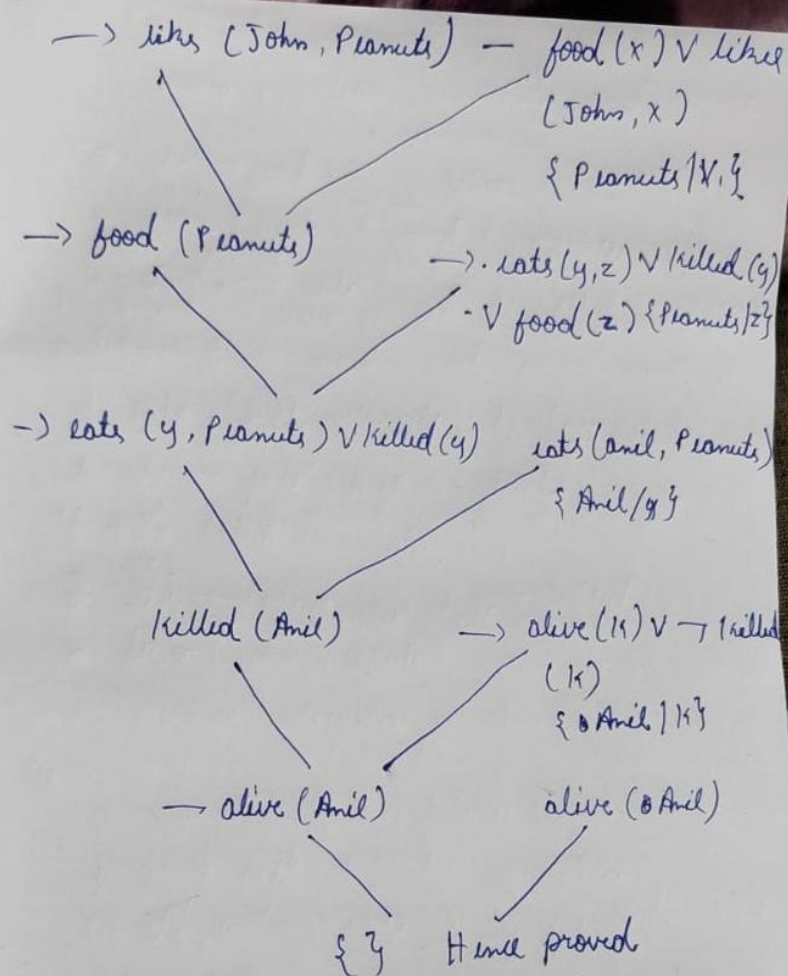 → likes (John, Peanuts) — food (x) V likes
(John, x)
{ Peanuts / X }
→ food (Peanuts)
→ . eats (y, z) V killed (y)
- V food (z) {Peanuts/z}
→ eats (y, Peanuts) V killed (y) eats (anil, Peanuts)
{ Anil / y }
killed (Anil) → alive (K) V ¬ killed
(K)
{ Anil / K }
— alive (Anil) alive (Anil)
{ } Hence proved